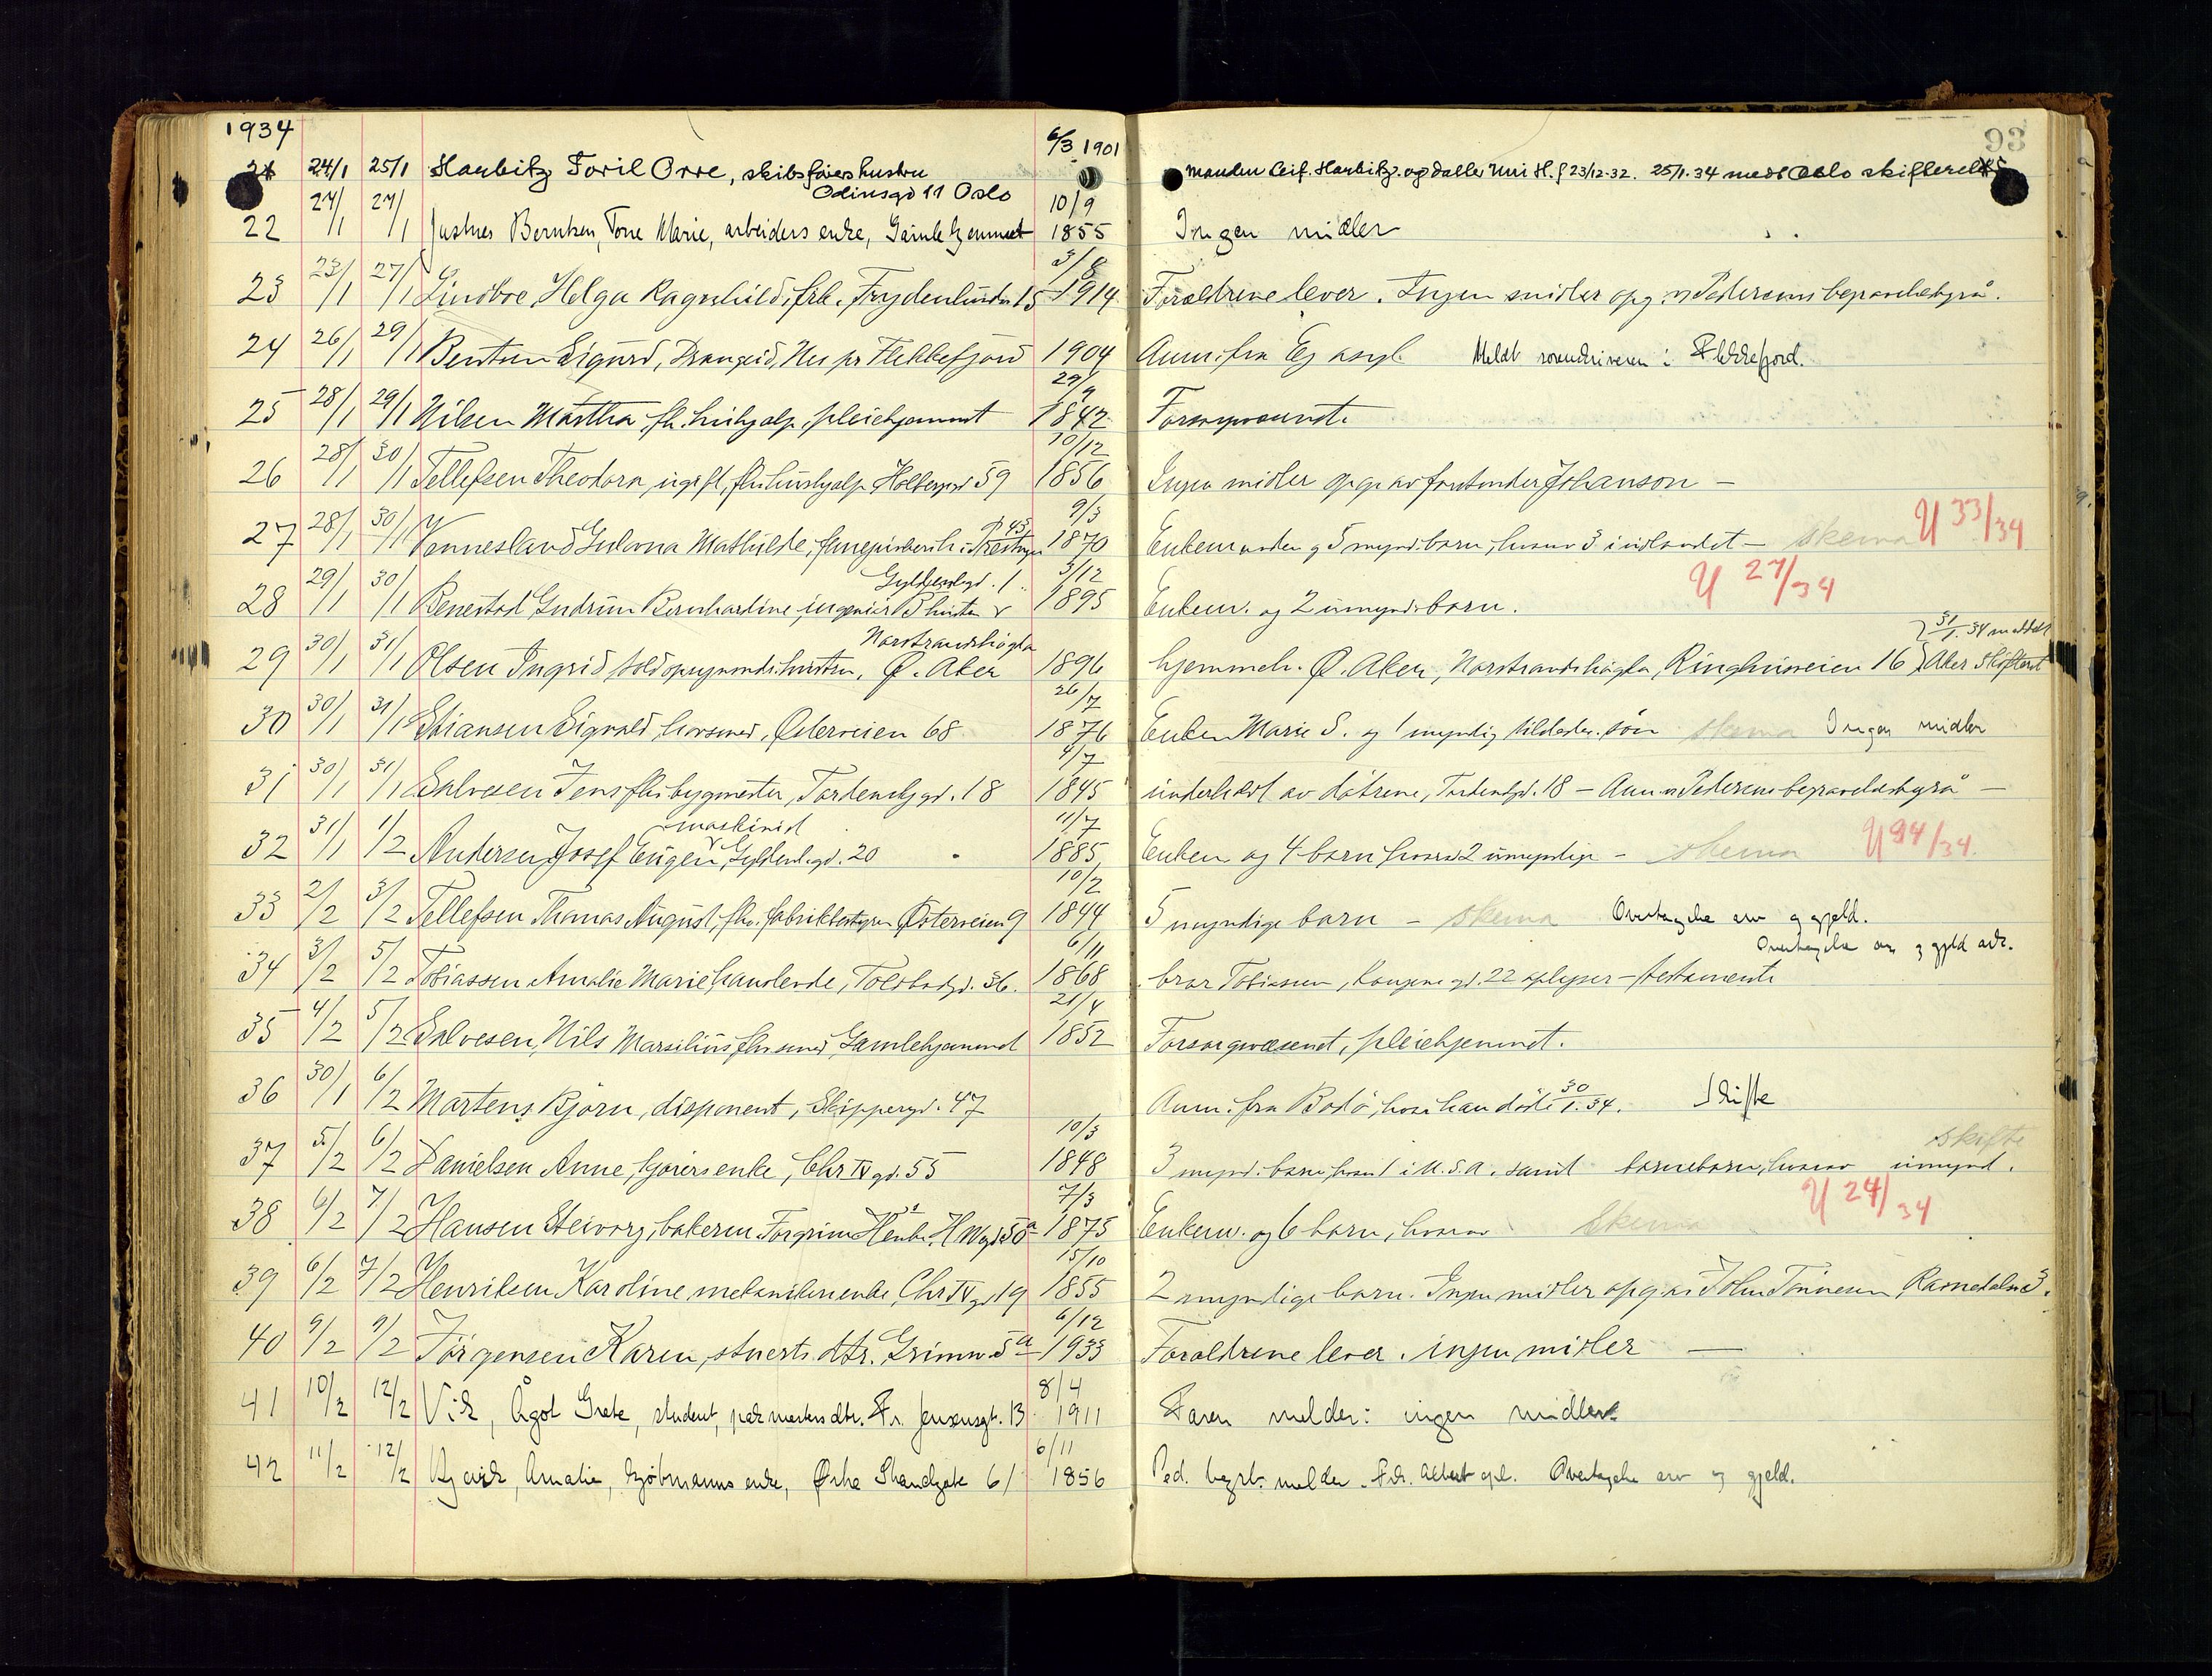 1934
93
6/3 1901
24/1 25/1 Haubitz Toril Orre, skibsførers hustru manden Leif Haubitz og datter Uni H. f 23/12-32. 25/1-34 medt Oslo skifteret
Odinsgd 11 Oslo
22 24/1 27/1 Justnes Berntsen, Tone Marie, arbeiders enke, Gamlehjemmet 10/9 1855 Ingen midler
23 23/1 27/1 Lindboe Helga Ragnhild, frk. 15 1914 Forældrene lever. Ingen midler opg. Pedersens begravelsbyrå.
24 26/1 29/1 Bentsen Sigurd, Drangeid, Nes pr Flekkefjord 1904 Anm. fra Eg asyl Meldt sorenskriveren i Flekkefjord.
25 28/1 29/1 Nilsen Martha, fh. hushjælp, pleiehjemmet 29/9 1842 Forsorgsvæsenet.
26 28/1 30/1 Tellefsen Theodora, ugift, fh. hushjælp Holbergsgd 59 10/12 1856 Ingen midler opg. av forstander Johanson —
27 28/1 30/1 Vennesland Gulovna Mathilde, 9/3 1870 Enkem. og 5 mynd. barn, hvorav 3 i utlandet — skema 33/34
Gyldenl.gd. 1.
28 29/1 30/1 Benestad Gudrun Bernhardine, ingeniør hustru 3/12 1895 Enkem. og 2 umynd. barn. 27/34
Norstrandshøgda 31/1. 34 meddelt
29 30/1 31/1 Olsen Ingrid toldopsynsmds. hustru, Ø. Aker 1896 hjemmeh. Ø. Aker, Norstrandshøgda, Ringhusveien 16 Aker Skifteret
30 30/1 31/1 Stiansen Sigvald, hovsmed, Østerveien 68 26/7 1876 Enken Marie S. og 1 myndig sønn skema Ingen midler
31 30/1 31/1 Salvesen Jens fhv. bygmester, Tordenskj.gd. 18 4/7 1845 underholdt av døtrene, Tordensk.gd. 18 — Anm. Pedersens begravelsbyrå —
maskinist
32 31/1 1/2 Andersen Josef Eugen, Gyldenl.gd. 20 11/7 1885 Enken og 4 barn hvorav 2 umyndige — skema 34/34.
33 2/2 3/2 Tellefsen Thomas August, fhv. fabrikbestyrer Østerveien 9 10/2 1844 5 myndige barn — skema Overtagelse arv og gjeld.
Overtagelse arv og gjeld
34 3/2 5/2 Tobiassen Amalie Marie handlende, Toldbodgd. 36. 6/11 1868 bror Tobiassen, Kongens gd. 22 oplyser — testamente
35 4/2 5/2 Salvesen, Nils Marselius fhv. smed, Gamlehjemmet 21/4 1852 Forsorgsvæsenet, pleiehjemmet.
36 30/1 6/2 Martens Bjørn, disponent, Skippergd. 47 Anm. fra Bodø, hvor han døde 30/1. 34. Skifte
skifte
37 5/2 6/2 Danielsen Anne, enke, Chr IV gd. 55 10/3 1848 3 mynd. barn, hvorav 1 i U.S.A. samt barnebarn, hvorav umynd.
38 6/2 7/2 Hansen Steivorg, bakerm. Torgrim H. Wgd 50a 7/3 1875 Enkem. og 6 barn, hvorav skema 24/34
39 6/2 7/2 Henriksen Karoline, mekanikers enke, Chr IV gd 19 15/10 1855 2 myndige barn. Ingen midler opg. av John Tønnesen, Ravnedalsv 3.
40 9/2 9/2 Jørgensen Karen, stuerts dtr. Grimsv. 5a 6/12 1933 Forældrene lever. ingen midler —
41 10/2 12/2 Vik, Ågot Grete, student, dtr. Fr. Jensensgt. 13 8/4 1911 Faren melder: ingen midler
42 11/2 12/2 Amalie, kjøbmanns enke, Østre Strandgate 61 6/11 1856 Ped. begr.b. melder. Albert opl. Overtagelse arv og gjeld.